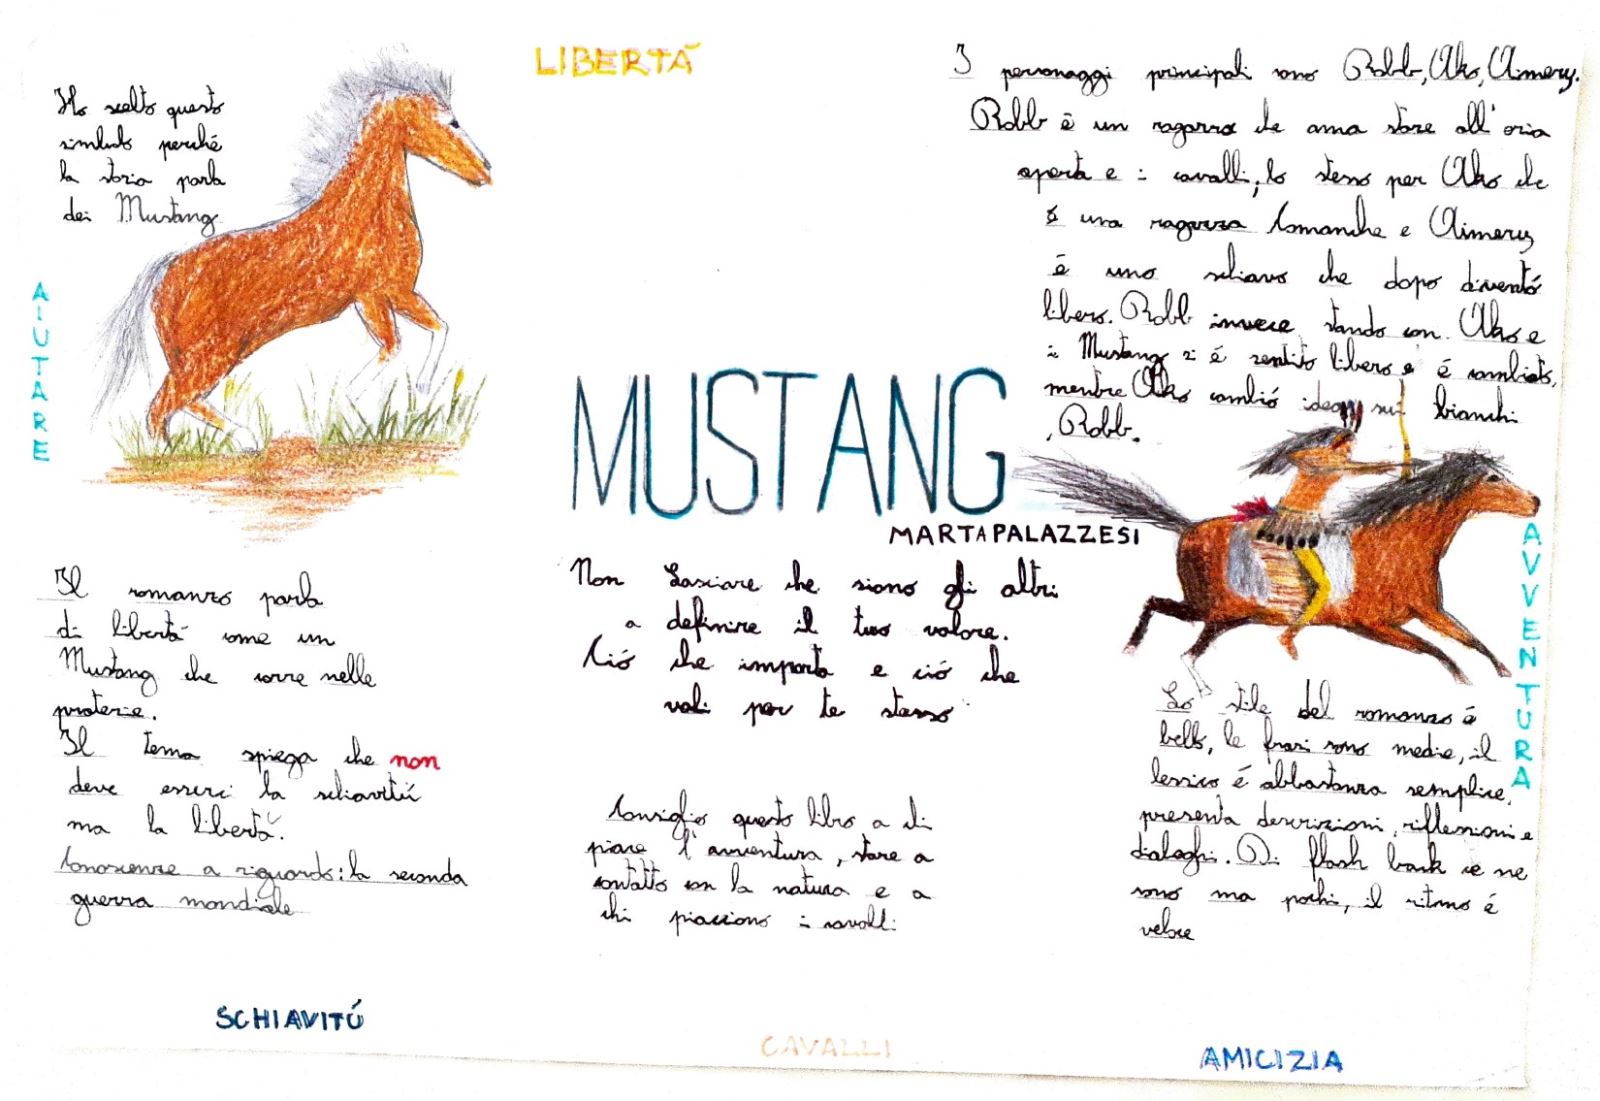 LIBERTÁ
Ho scelto questo
simbolo perché
la storia parla
dei Mustang
AIUTARE
I personaggi principali sono Robb, Ako, Aimery.
Robb é un ragazzo che ama stare all'aria
aperta e i cavalli, lo stesso per Ako che
é una ragazza Comanche e Aimery
é uno schiavo che dopo diventó
libero. Robb invece stando con Ako e
i Mustang si é sentito libero e é cambiato,
mentre Ako cambió idea sui bianchi
, Robb.
MUSTANG
MARTA PALAZZESI
AVVENTURA
Il romanzo parla
di libertá come un
Mustang che corre nelle
praterie.
Il tema spiega che non
deve esserci la schiavitú
ma la libertá.
Conoscenze a riguardo: la seconda
guerra mondiale
Non Lasciare che siano gli altri
a definire il tuo valore.
Ció che importa e ció che
vali per te stesso
Consiglio questo libro a chi
piace l'avventura, stare a
contatto con la natura e a
chi piacciono i cavalli
Lo stile del romanzo é
bello, le frasi sono medie, il
lessico é abbastanza semplice,
presenta descrizioni, riflessioni e
dialoghi. Di flash back ce ne
sono ma pochi, il ritmo é
veloce
SCHIAVITÚ
CAVALLI
AMICIZIA